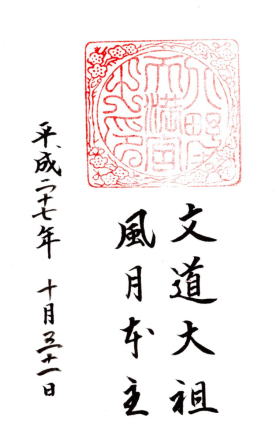 文道大祖
風月本主
平成二十七年 十月三十一日